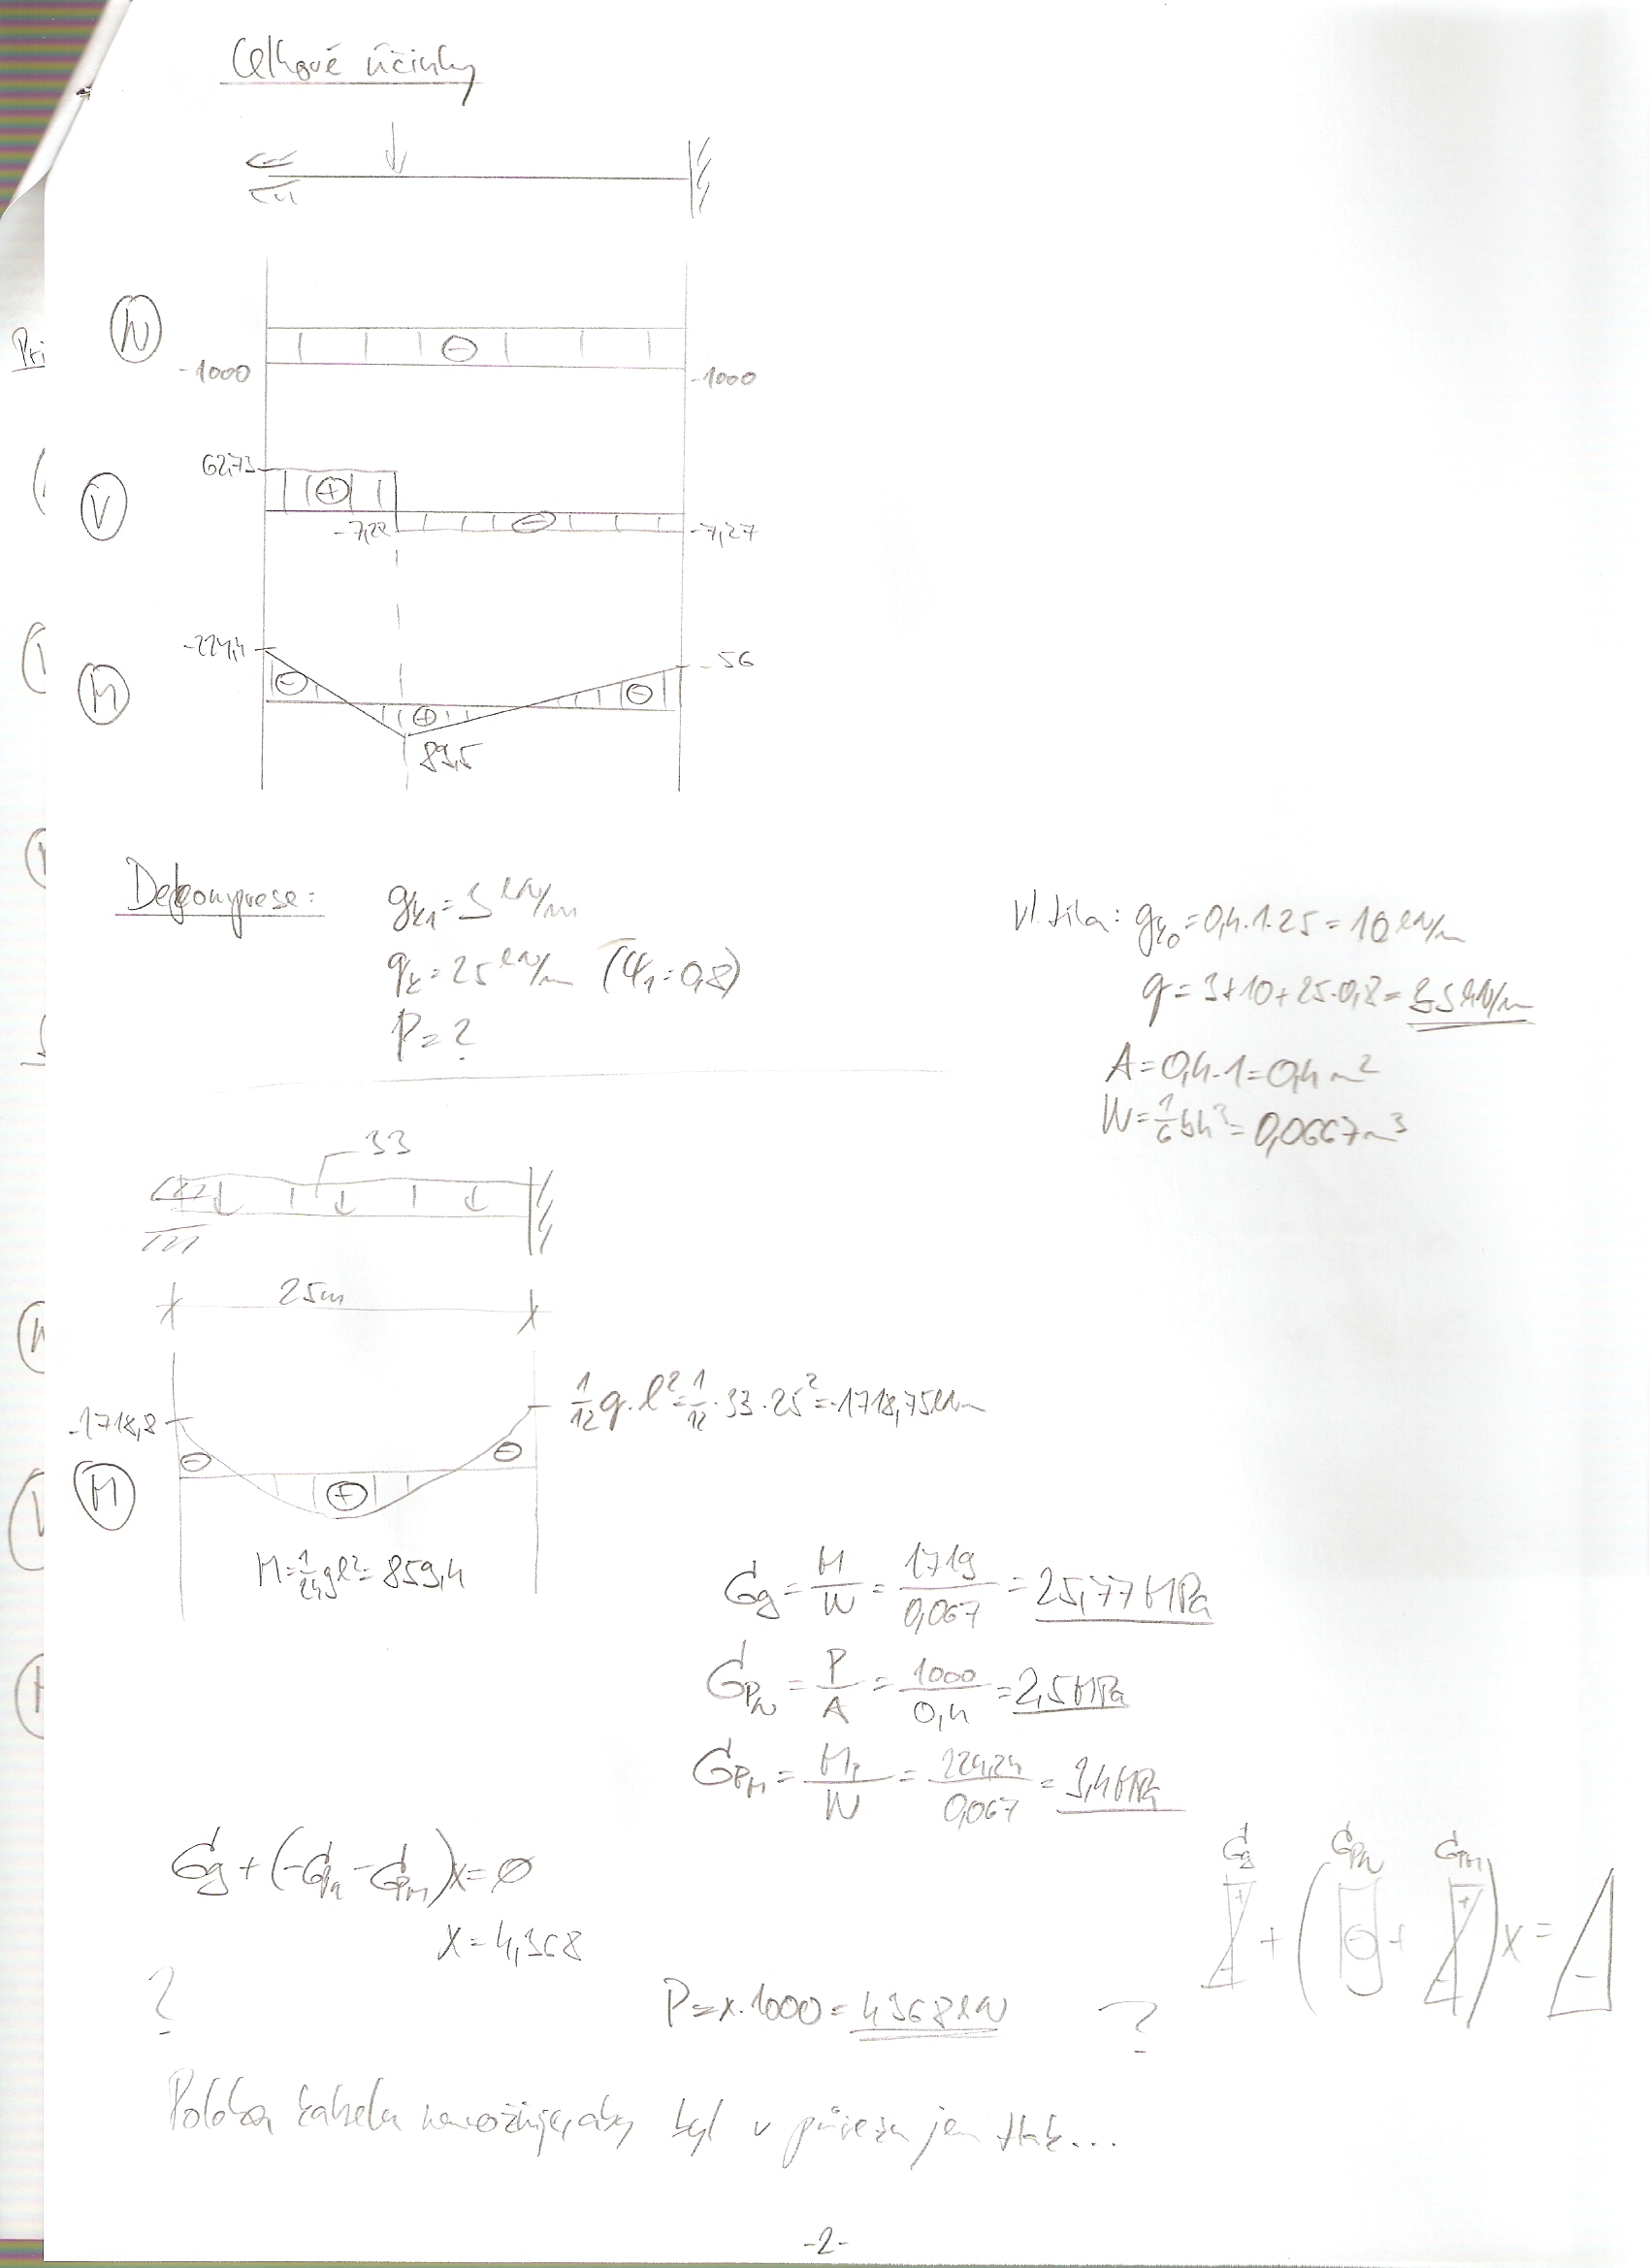 Celkové účinky
N
Při
-1000
-1000
62,73
V
-7,22
-7,27
-224,4
-56
M
89,5
Dekomprese:
gk1=3 kN/m
qk=25 kN/m (ψ1=0,8)
P=?
vl. tíha: gk0=0,4·1·25=10 kN/m
q=3+10+25·0,8=33 kN/m
A=0,4·1=0,4m²
W=1/6bh²=0,0667m³
33
25m
-1718,8
1/12q·l²=1/12·33·25²=-1718,75kNm
M
M=1/24gl²=859,4
σg=M/W=1719/0,067=25,77MPa
σPN=P/A=1000/0,4=2,5MPa
σPM=MP/W=224,24/0,067=3,4MPa
σg+(-σPN-σPM)x=0
x=4,368
σg σPN σPM
+ ( + )x=
?
P=x·1000=4368kN ?
Poloha kabelu neumožňuje, aby byl v průřezu jen tlak...
-2-